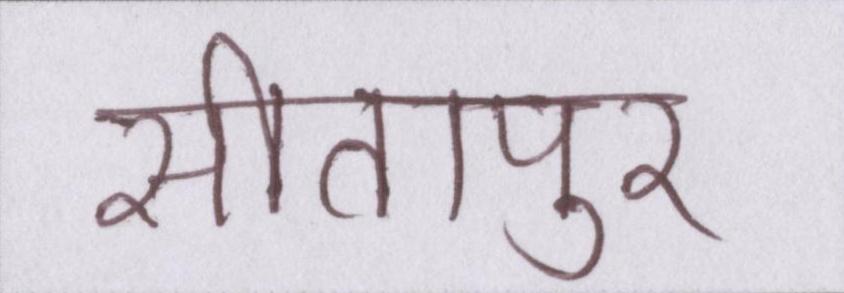 सीतापुर